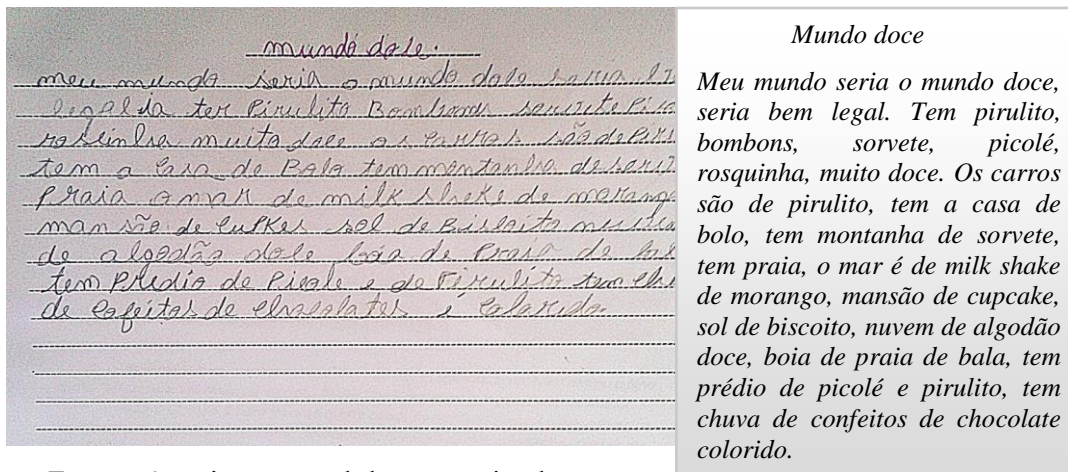 mundo dose.
meu mundo seria o mundo dose seria
legal da ter Pirulito Bombons sorvete
muito dose os carros são de
tem a casa de Bolo tem montanha de
Praia o mar de milk sheke de morango
man são de cupkes sol de Biscoito
de algodão dose boia de Praia de
tem Predio de Picole e de Pirulito tem
de cofeitos de chocolates e colorido.
Mundo doce
Meu mundo seria o mundo doce,
seria bem legal. Tem pirulito,
bombons, sorvete, picolé,
rosquinha, muito doce. Os carros
são de pirulito, tem a casa de
bolo, tem montanha de sorvete,
tem praia, o mar é de milk shake
de morango, mansão de cupcake,
sol de biscoito, nuvem de algodão
doce, boia de praia de bala, tem
prédio de picolé e pirulito, tem
chuva de confeitos de chocolate
colorido.